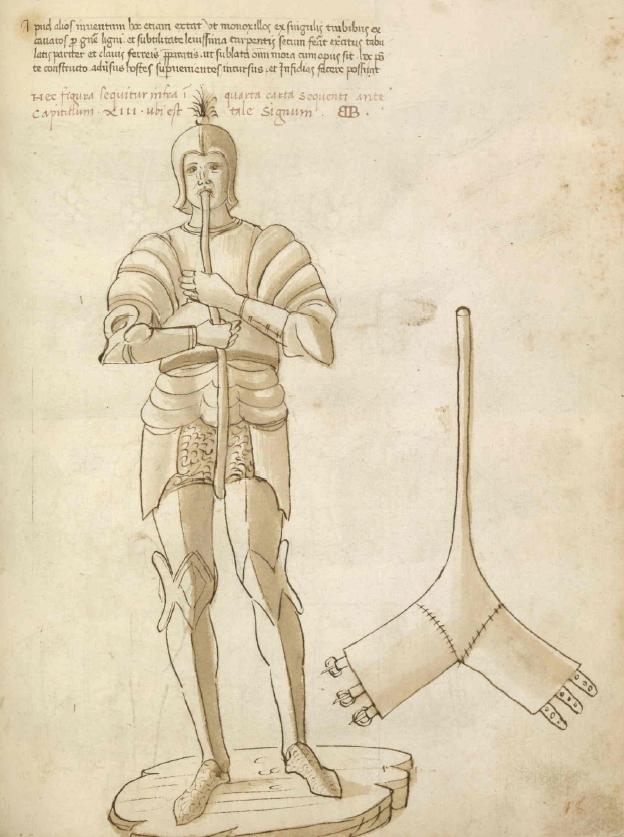 Apud alios inventum hoc etiam extat Vt monoxillos ex singulis trabibus ex
cauatos p gn̄e ligni et subtilitate leuissima carpentis secum ferat exercitus tabu
latis pariter et clauis ferreis p̄paratis ut sublata om̄i mora cum opus sit
te constructo aduersus hostes superuenientes incursus et Insidias facere possint
Hec figura sequitur infra i quarta carta sequenti ante
Capitulum XIII ubi est tale signum B
18